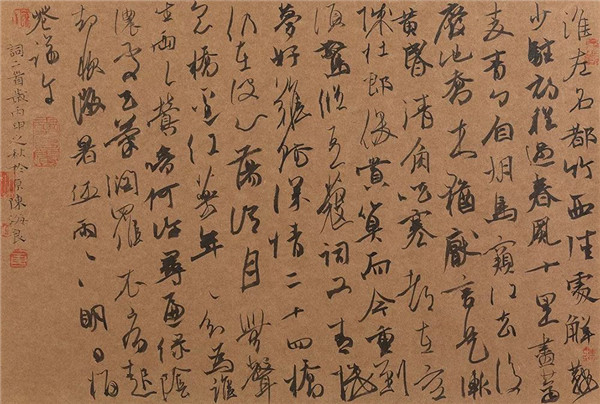 淮左名都竹西佳處解鞍
少駐初程過春風十里盡薺
麥青青自胡馬窺江去後
廢池喬木猶厭言兵漸
黃昏清角吹寒都在空
城杜郎俊賞算而今重到
須驚縱豆蔻詞工青樓
夢好難賦深情二十四橋
仍在波心蕩冷月無聲
念橋邊紅藥年年知為誰
生雨暗何許尋綠陰
濃處不為起
却明日酒
詞二首歲丙申之秋於京陳海良